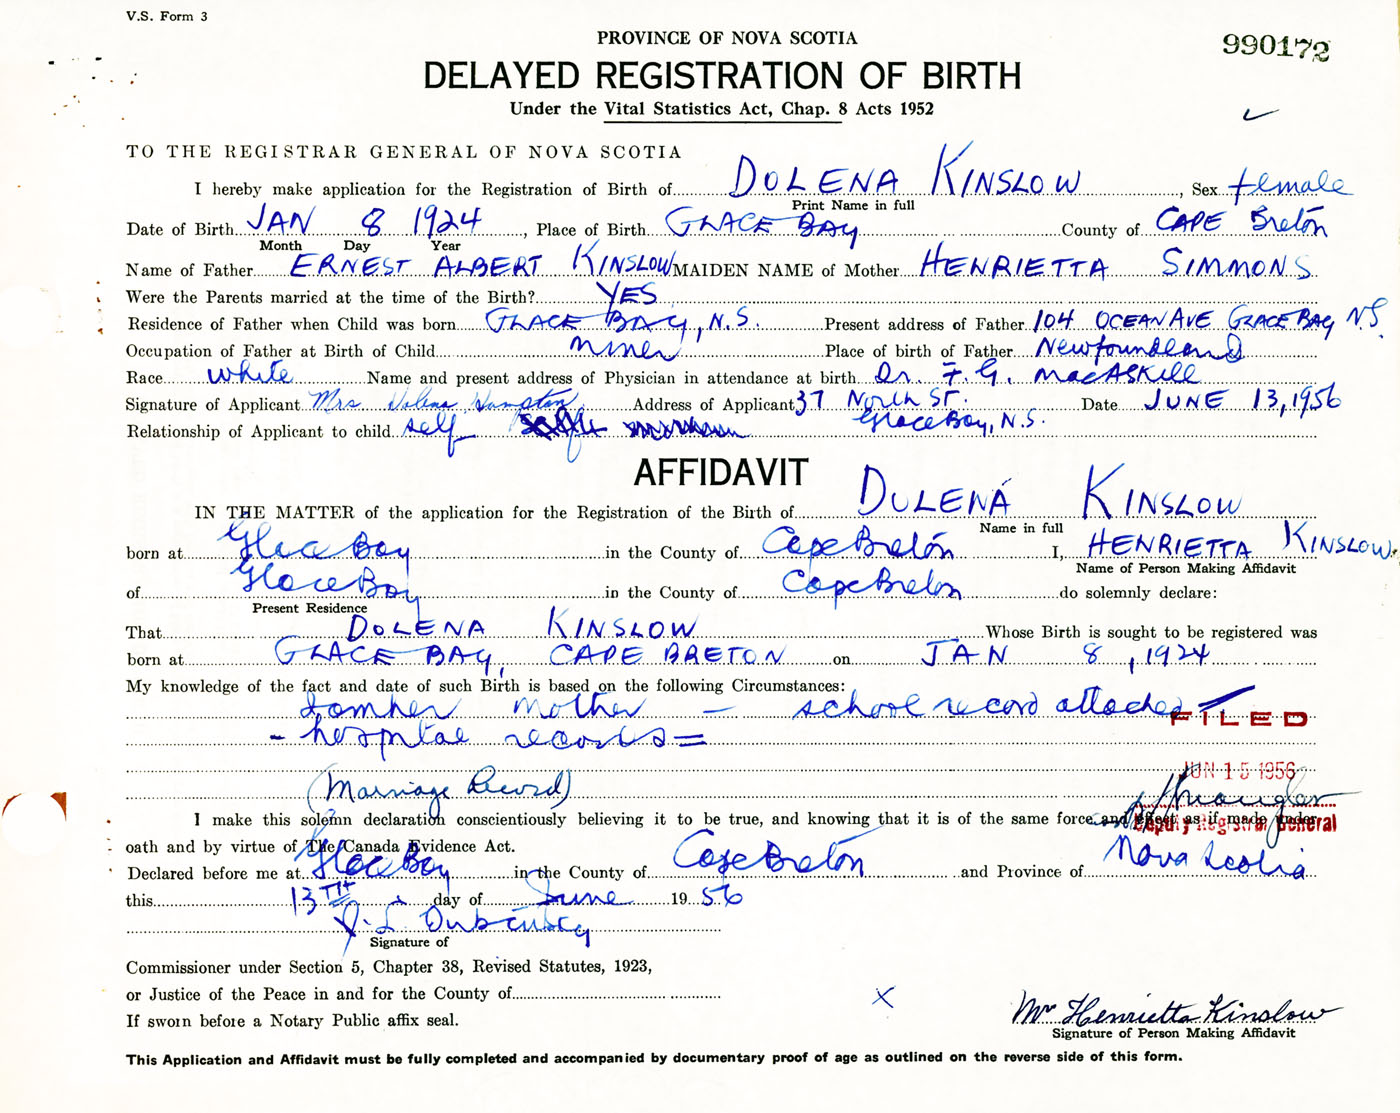 V.S. Form 3
990172
PROVINCE OF NOVA SCOTIA
DELAYED REGISTRATION OF BIRTH
Under the Vital Statistics Act, Chap. 8 Acts 1952
TO THE REGISTRAR GENERAL OF NOVA SCOTIA
I hereby make application for the Registration of Birth of DOLENA KINSLOW, Sex female
Print Name in full
Date of Birth JAN 8 1924, Place of Birth GLACE BAY County of CAPE Breton
Month Day Year
Name of Father ERNEST ALBERT KINSLOW MAIDEN NAME of Mother HENRIETTA SIMMONS
Were the Parents married at the time of the Birth? YES
Residence of Father when Child was born GLACE BAY, N.S. Present address of Father 104 OCEAN AVE GLACE BAY N.S.
Occupation of Father at Birth of Child miner Place of birth of Father Newfoundland
Race white Name and present address of Physician in attendance at birth Dr. F. G. MacASKill
Signature of Applicant Mrs Dolena Address of Applicant 37 North ST. Date JUNE 13, 1956
Relationship of Applicant to child self Glace Bay, N.S.
AFFIDAVIT
IN THE MATTER of the application for the Registration of the Birth of DULENA KINSLOW
Name in full
born at Glace Bay in the County of Cape Breton I, HENRIETTA KINSLOW
Name of Person Making Affidavit
of Glace Bay in the County of Cape Breton do solemnly declare:
Present Residence
That DOLENA KINSLOW Whose Birth is sought to be registered was
born at GLACE BAY, CAPE BRETON on JAN 8, 1924
My knowledge of the fact and date of such Birth is based on the following Circumstances:
I am her mother - school record attached
FILED
- hospital records =
JUN 15 1956
(Marriage Record)
I make this solemn declaration conscientiously believing it to be true, and knowing that it is of the same force and effect as if made under
Deputy Registrar General
oath and by virtue of The Canada Evidence Act.
Declared before me at Glace Bay in the County of Cape Breton and Province of Nova Scotia
this 13TH day of June 1956
Signature of
Commissioner under Section 5, Chapter 38, Revised Statutes, 1923,
or Justice of the Peace in and for the County of
If sworn before a Notary Public affix seal.
X
Mrs Henrietta Kinslow
Signature of Person Making Affidavit
This Application and Affidavit must be fully completed and accompanied by documentary proof of age as outlined on the reverse side of this form.